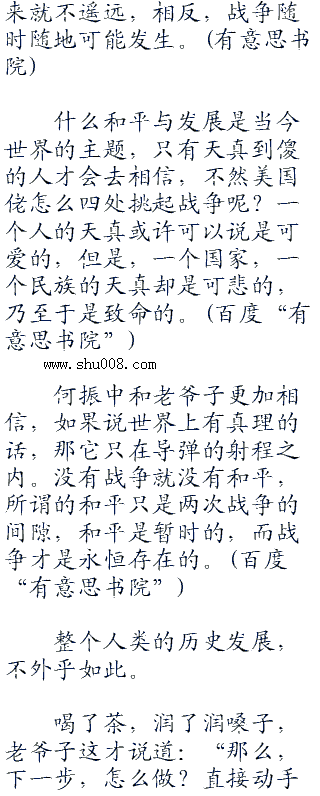 来就不遥远，相反，战争随
时随地可能发生。(有意思书
院)
什么和平与发展是当今
世界的主题，只有天真到傻
的人才会去相信，不然美国
佬怎么四处挑起战争呢？一
个人的天真或许可以说是可
爱的，但是，一个国家，一
个民族的天真却是可悲的，
乃至于是致命的。(百度“有
意思书院”)
www.shu008.com
何振中和老爷子更加相
信，如果说世界上有真理的
话，那它只在导弹的射程之
内。没有战争就没有和平，
所谓的和平只是两次战争的
间隙，和平是暂时的，而战
争才是永恒存在的。(百度
“有意思书院”)
整个人类的历史发展，
不外乎如此。
喝了茶，润了润嗓子，
老爷子这才说道：“那么，
下一步，怎么做？直接动手